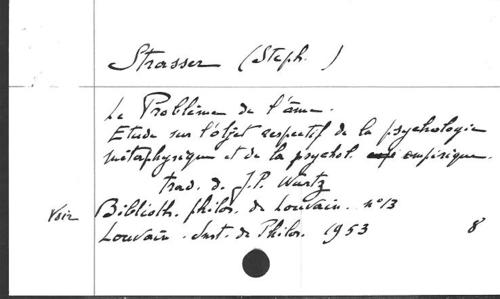 Strasser (Steph. )
Le Problème de l'âme.
Etude sur l'objet respectif de la psychologie
métaphysique et de la psychol. empirique.
trad. de J.P. Wurtz
Voir Biblioth. philos. de Louvain. n°13
Louvain. Inst. de Philos. 1953 8